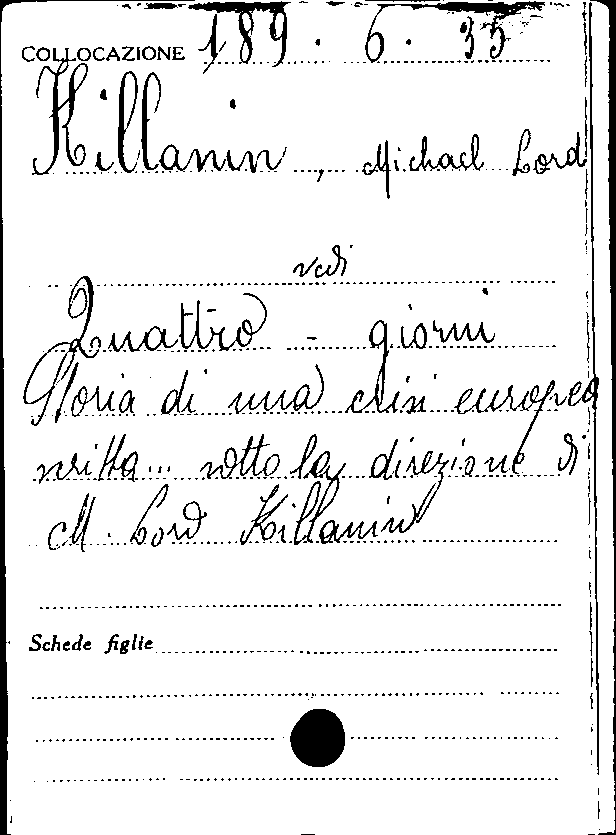 COLLOCAZIONE 189. 6. 35
Killanin, Michael Lord
vedi
Quattro - giorni
Storia di una crisi europea
scritta... sotto la direzione di
M. Lord Killanin
Schede figlie